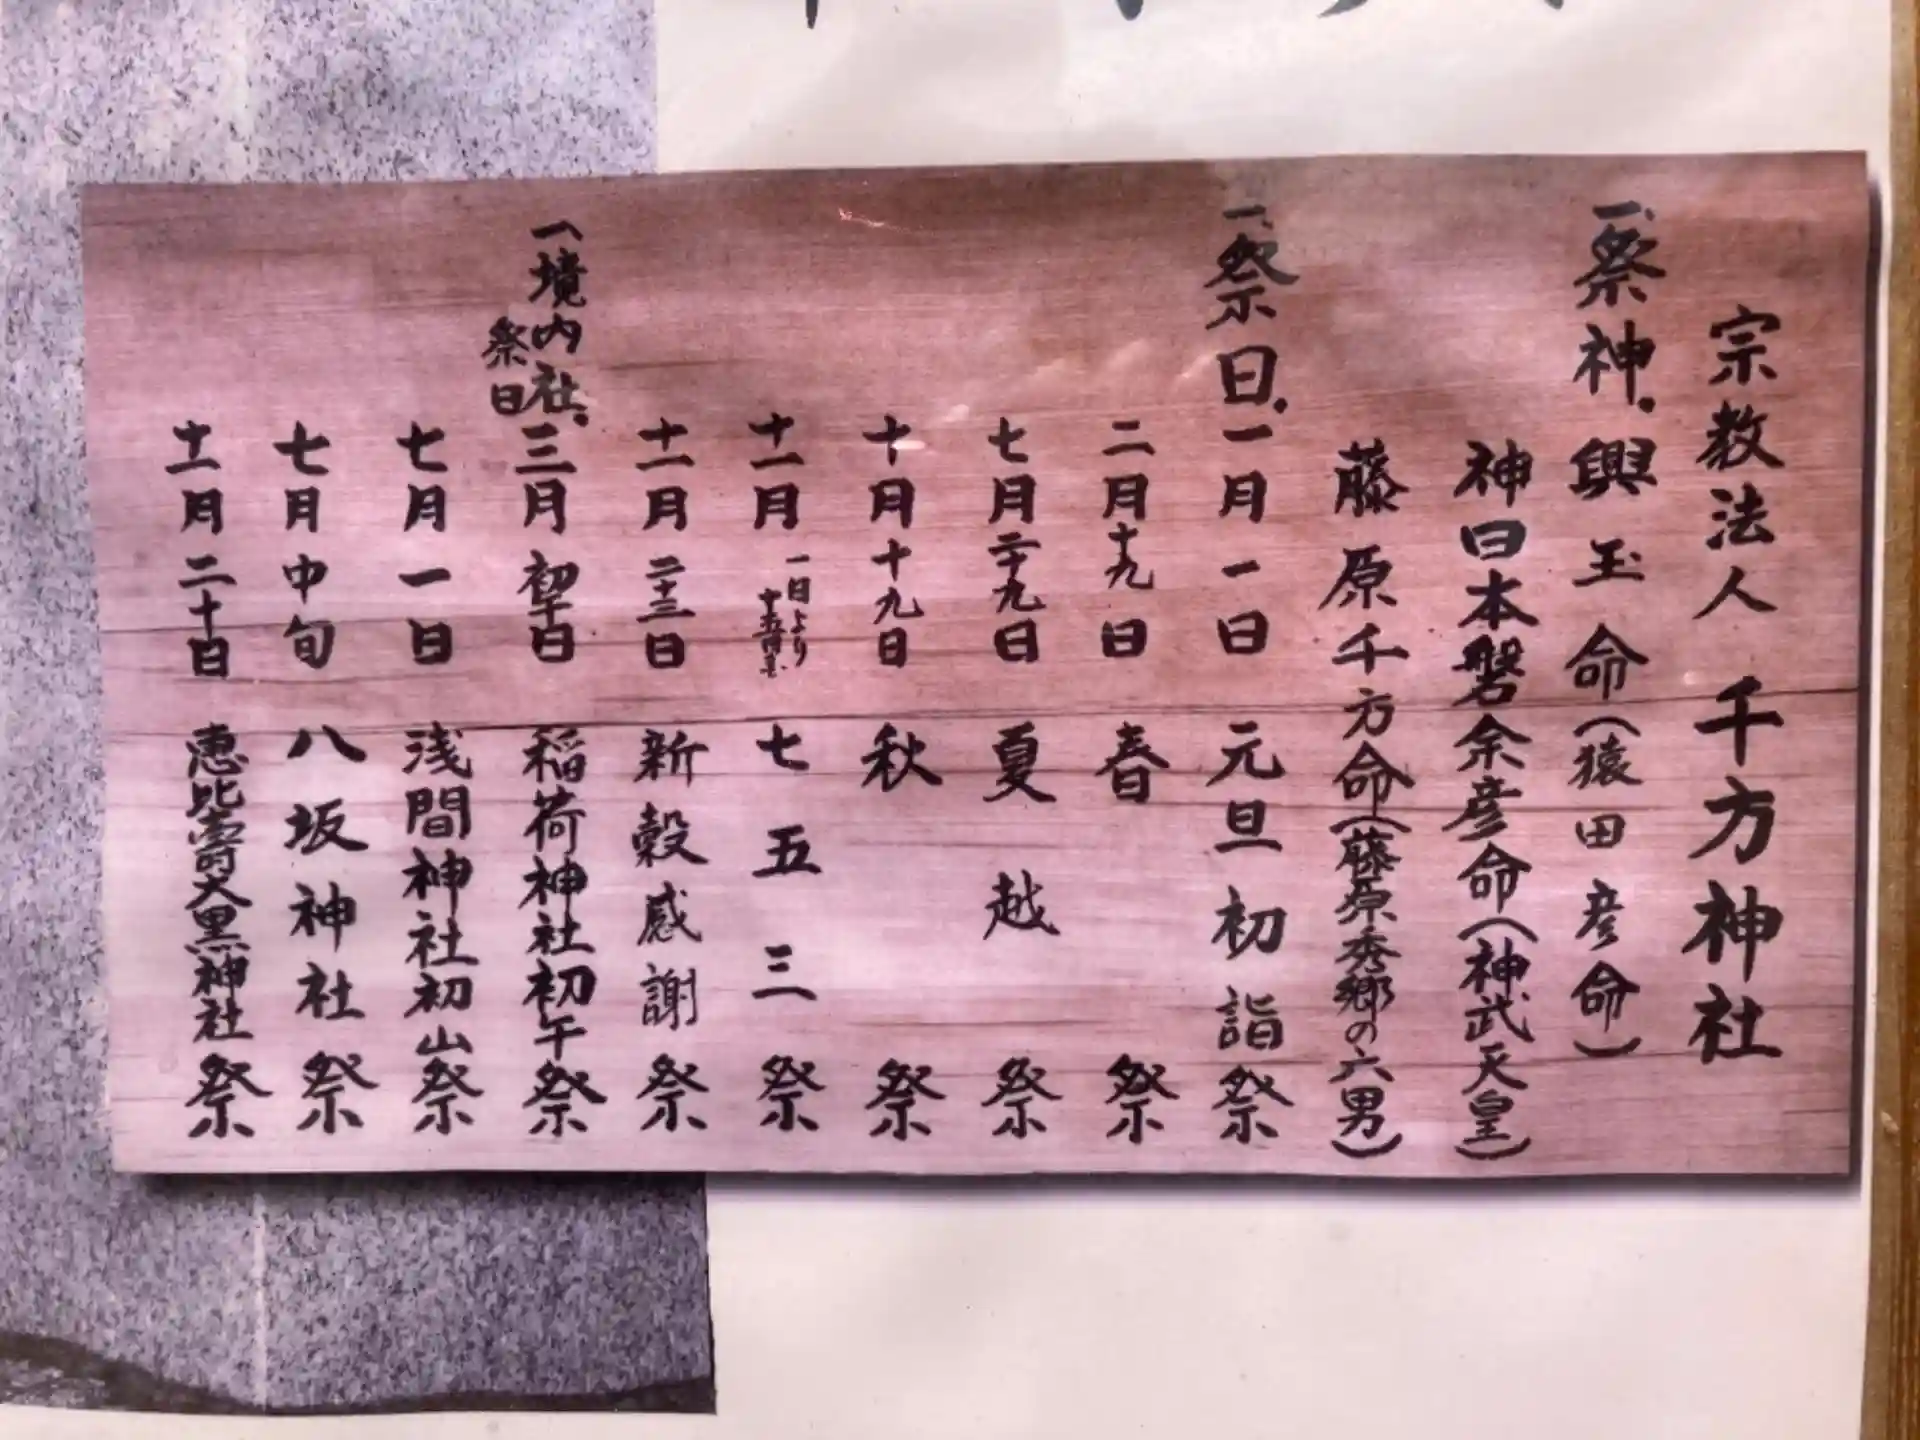 宗教法人 千方神社
一、祭神・興玉命(猿田彦命)
神日本磐余彦命(神武天皇)
藤原千方命(藤原秀郷の六男)
一、祭日・一月一日 元旦初詣祭
二月十九日 春祭
七月二十九日 夏越祭
十月十九日 秋祭
十一月 一日より 七五三祭
十一月二十三日 新穀感謝祭
一、境内社・祭日 三月初午日 稲荷神社初午祭
七月一日 浅間神社初山祭
七月中旬 八坂神社祭
十一月二十日 恵比寿大黒神社祭